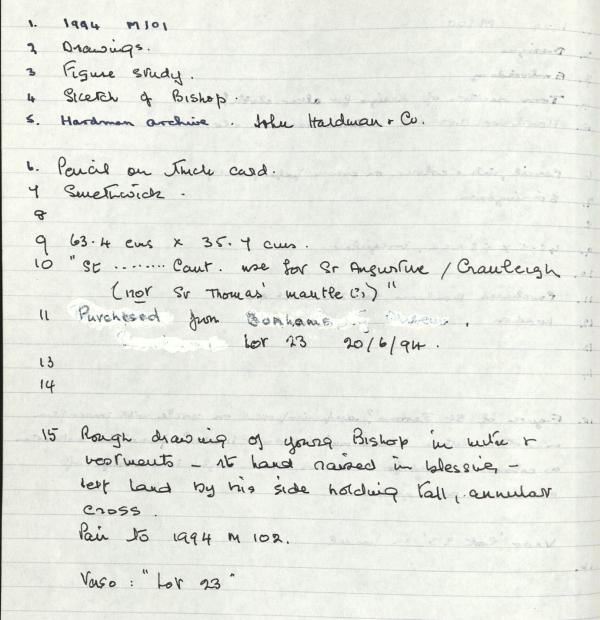 1. 1994 M101
2 Drawings.
3 Figure study.
4 Sketch of Bishop.
5. Hardman archive. John Hardman + Co.
6. Pencil on thick card.
7 Smethwick.
8
9 63.4 cms x 35.7 cms.
10 "St ........ Cant. use for St Augustine / Cranleigh
(not St Thomas' mantle (?))"
11 Purchased from Bonhams
Lot 23 20/6/94.
13
14
15 Rough drawing of young Bishop in mitre +
vestments - rt hand raised in blessing -
left hand by his side holding tall, annular
cross.
Pair to 1994 M 102.
Verso: "Lot 23"